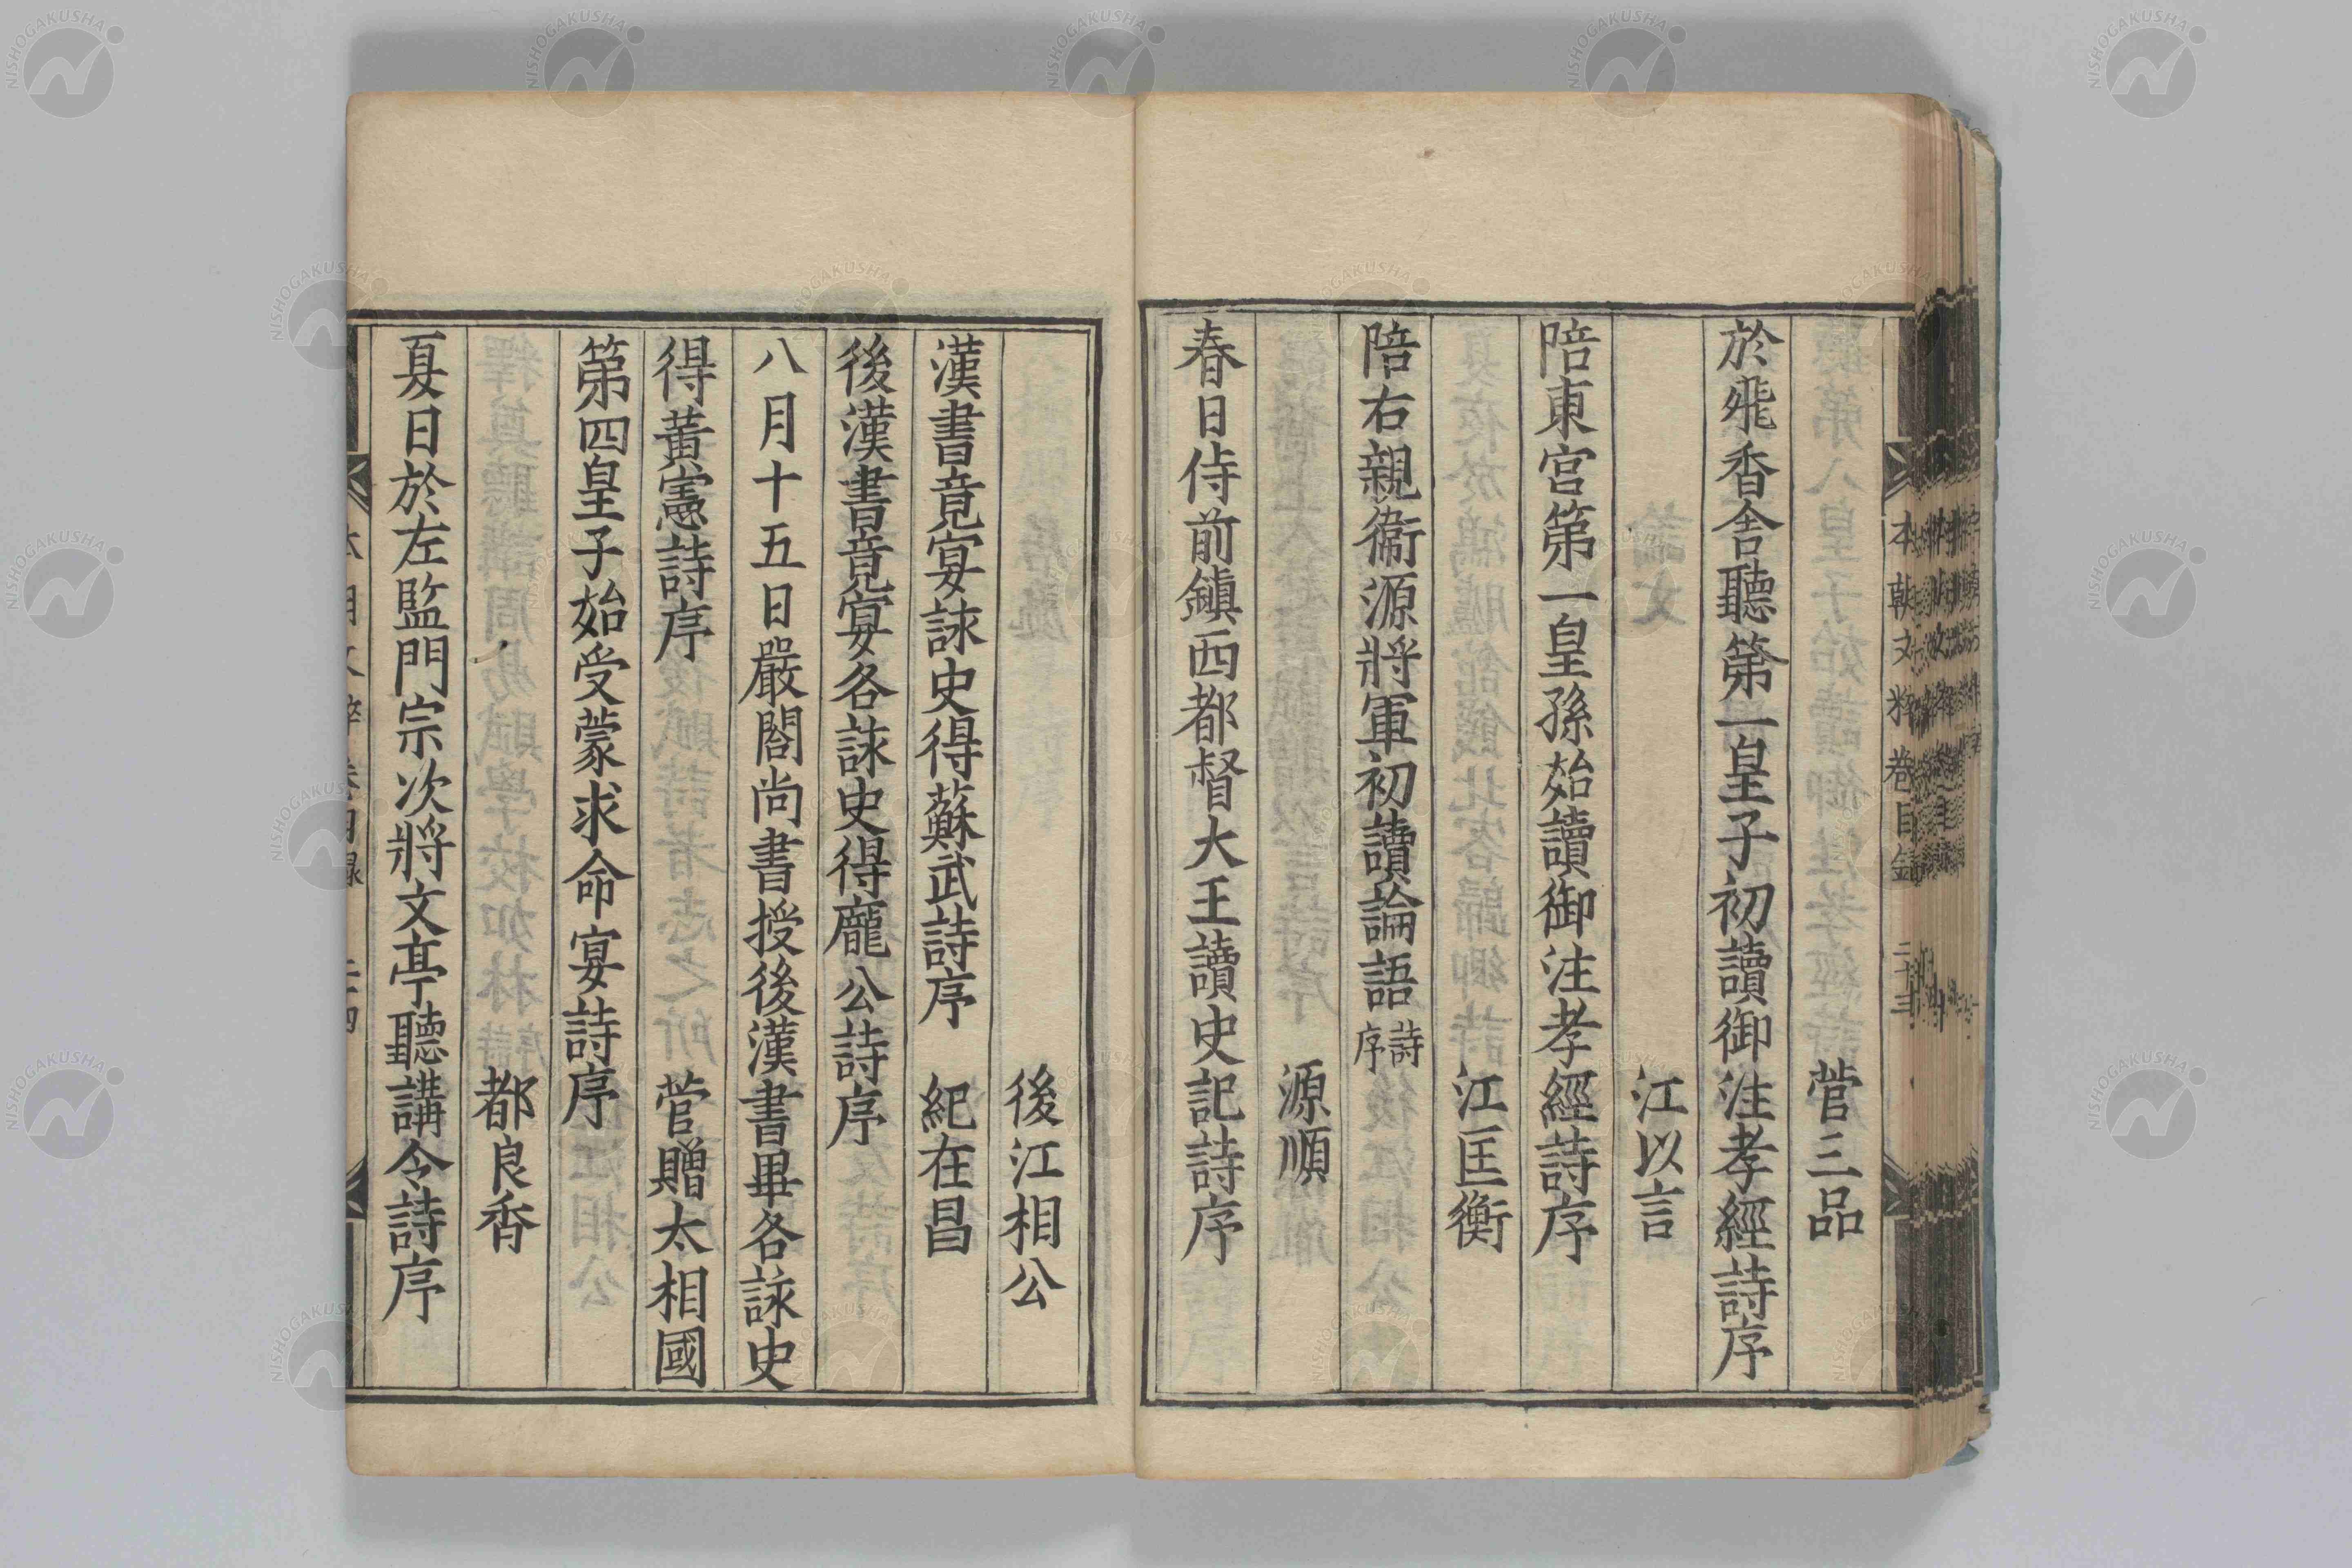 菅三品
於飛香舎聽第一皇子初讀御注孝經詩序
江以言
陪東宮第一皇孫始讀御注孝經詩序
江匡衡
陪右親衞源將軍初讀論語詩序
源順
春日侍前鎮西都督大王讀史記詩序
後江相公
漢書竟宴詠史得蘇武詩序 紀在昌
後漢書竟宴各詠史得龐公詩序
八月十五日嚴閤尚書授後漢書畢各詠史
得黃憲詩序 菅贈太相國
第四皇子始受蒙求命宴詩序
都良香
夏日於左監門宗次將文亭聽講令詩序
本朝文粹卷目録 二十三
NISHOGAKUSHA